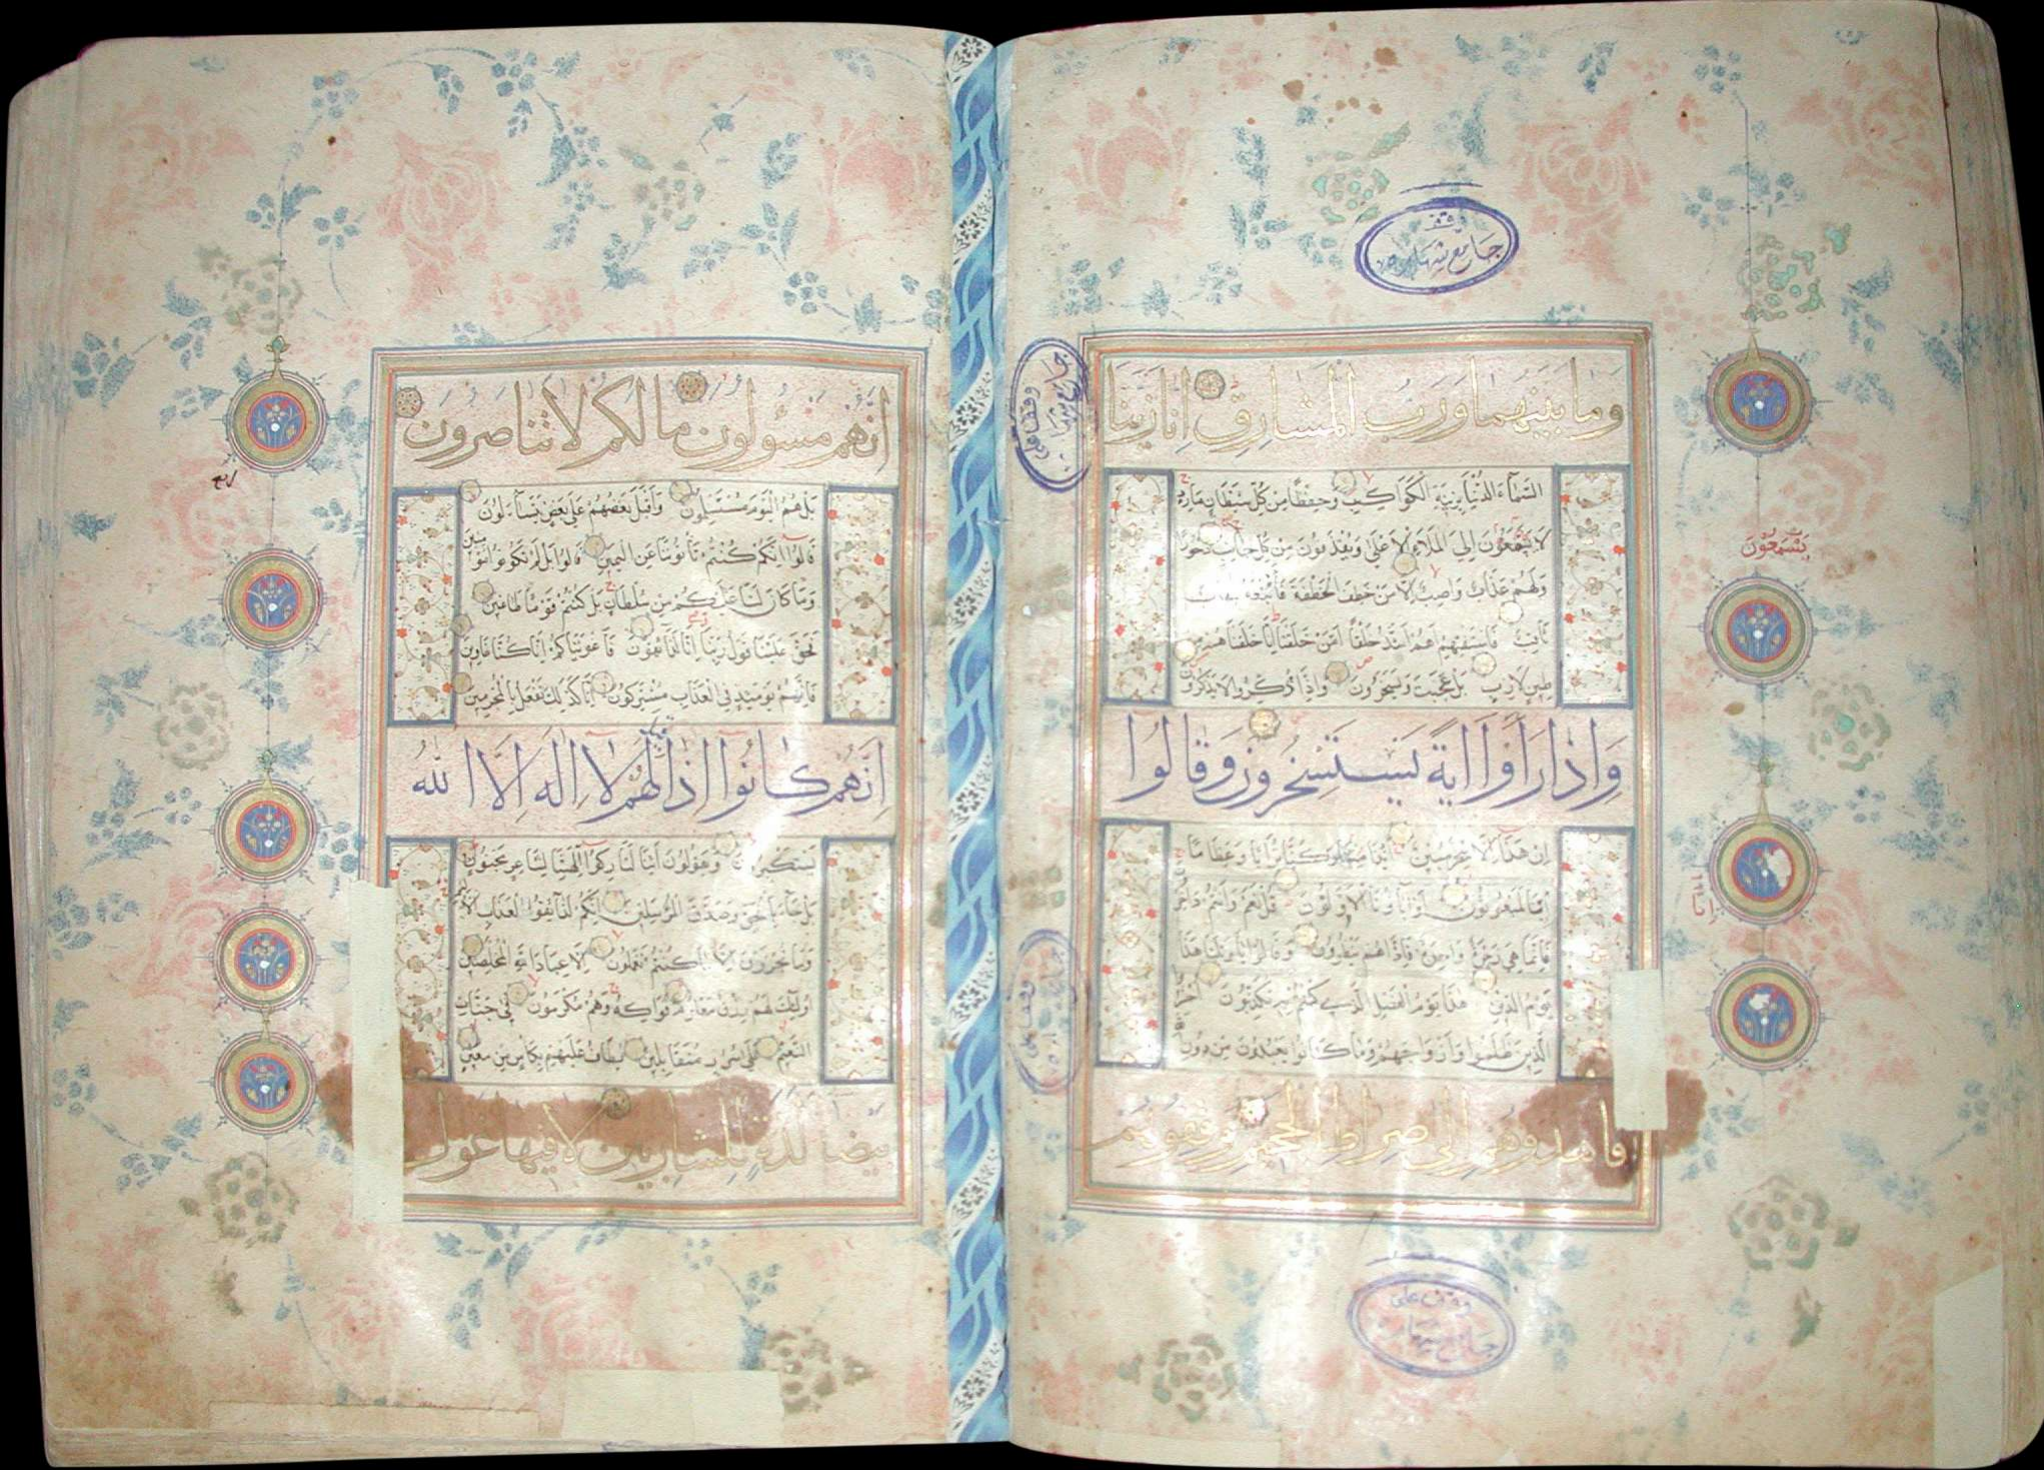 وقف
جامع شهاره
وما بينهما ورب المشارق انا زينا
السماء الدنيا بزينة الكواكب وحفظا من كل شيطان مارد
لا يسمعون الى الملاء الاعلى ويقذفون من كل جانب دحورا
ولهم عذاب واصب الا من خطف الخطفة فاتبعه شهاب
ثاقب فاستفتهم اهم اشد خلقا ام من خلقنا انا خلقناهم من
طين لازب بل عجبت ويسخرون واذا ذكروا لا يذكرون
واذا راوا اية يستسخرون وقالوا
ان هذا الا سحر مبين ائذا متنا وكنا ترابا وعظاما
ائنا لمبعوثون او اباؤنا الاولون قل نعم وانتم داخرون
فانما هي زجرة واحدة فاذا هم ينظرون وقالوا يا ويلنا هذا
يوم الدين هذا يوم الفصل الذي كنتم به تكذبون احشروا
الذين ظلموا وازواجهم وما كانوا يعبدون من دون
فاهدوهم الى صراط الجحيم وقفوهم
يتسمعون
وقف على
جامع شهاره
انهم مسولون ما لكم لا تناصرون
بل هم اليوم مستسلمون واقبل بعضهم على بعض يتساءلون
قالوا انكم كنتم تاتوننا عن اليمين قالوا بل لم تكونوا مؤمنين
وما كان لنا عليكم من سلطان بل كنتم قوما طاغين
فحق علينا قول ربنا انا لذائقون فاغويناكم انا كنا غاوين
فانهم يومئذ في العذاب مشتركون انا كذلك نفعل بالمجرمين
انهم كانوا اذا قيل لهم لا اله الا الله
يستكبرون ويقولون ائنا لتاركوا الهتنا لشاعر مجنون
بل جاء بالحق وصدق المرسلين انكم لذائقوا العذاب الاليم
وما تجزون الا ما كنتم تعملون الا عباد الله المخلصين
اولئك لهم رزق معلوم فواكه وهم مكرمون في جنات
النعيم على سرر متقابلين يطاف عليهم بكاس من معين
بيضا لذة للشاربين لا فيها غول
ربع